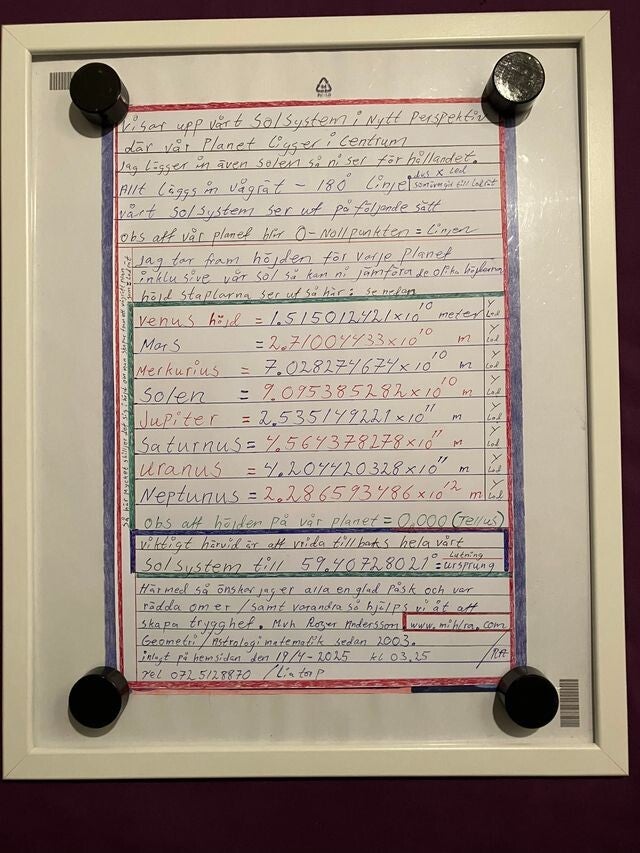 Visar upp vårt Solsystem i Nytt Perspektiv
där vår Planet Ligger i Centrum
Jag lägger in även solen så ni ser för hållandet.
Allt Läggs in vågrät - 180° Linje. dvs X Led
vårt Solsystem ser ut på följande sätt
obs att vår planet blir 0-Nollpunkten = Linjen
Jag tar fram höjden för varje Planet
inklusive vår sol så kan ni jämföra de olika höjderna
höjd staplarna ser ut så här: se nedan
Venus höjd = 1.515012421 x 10^10 meter Y Led
Mars = 2.71004433 x 10^10 m Y Led
Merkurius = 7.028274674 x 10^10 m Y Led
Solen = 9.095385282 x 10^10 m Y Led
Jupiter = 2.535149221 x 10^11 m Y Led
Saturnus = 4.564378278 x 10^11 m Y Led
Uranus = 4.204420328 x 10^11 m Y Led
Neptunus = 2.286593486 x 10^12 m Y Led
obs att höjden på vår planet = 0,000 (Tellus)
viktigt härvid är att vrida tillbaks hela vårt
Solsystem till 59.40728021° = Lutning ursprung
Härmed så önskar jag er alla en glad Påsk och var
rädda om er / samt varandra så hjälps vi åt att
skapa trygghet. Mvh Roger Andersson www.mihlra.com
Geometri / Astrologi matematik sedan 2003.
inlagt på hemsidan den 19/4-2025 kl 03.25
Tel 0725128870 / Liatorp